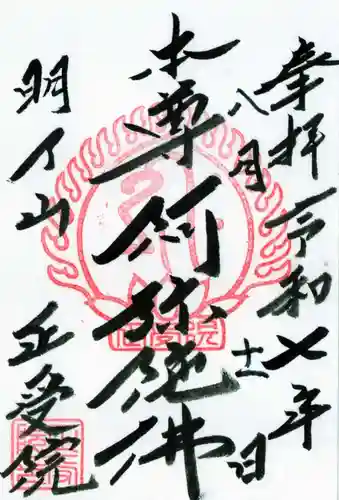 奉拝 令和七年
八月十一日
本尊阿弥陀佛
明人山
正受院